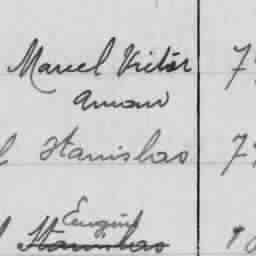 Marcel Victor 7
Amand
Stanislas 7
Eugène
Stanislas